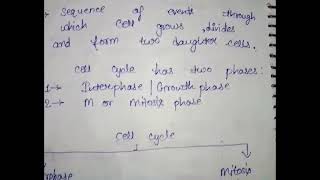 → Sequence of events through
which cell grows, divides
and form two daughter cells.
cell cycle has two phases:
1→ Interphase | Growth phase
2→ M or mitosis phase
Cell cycle
Mitosis